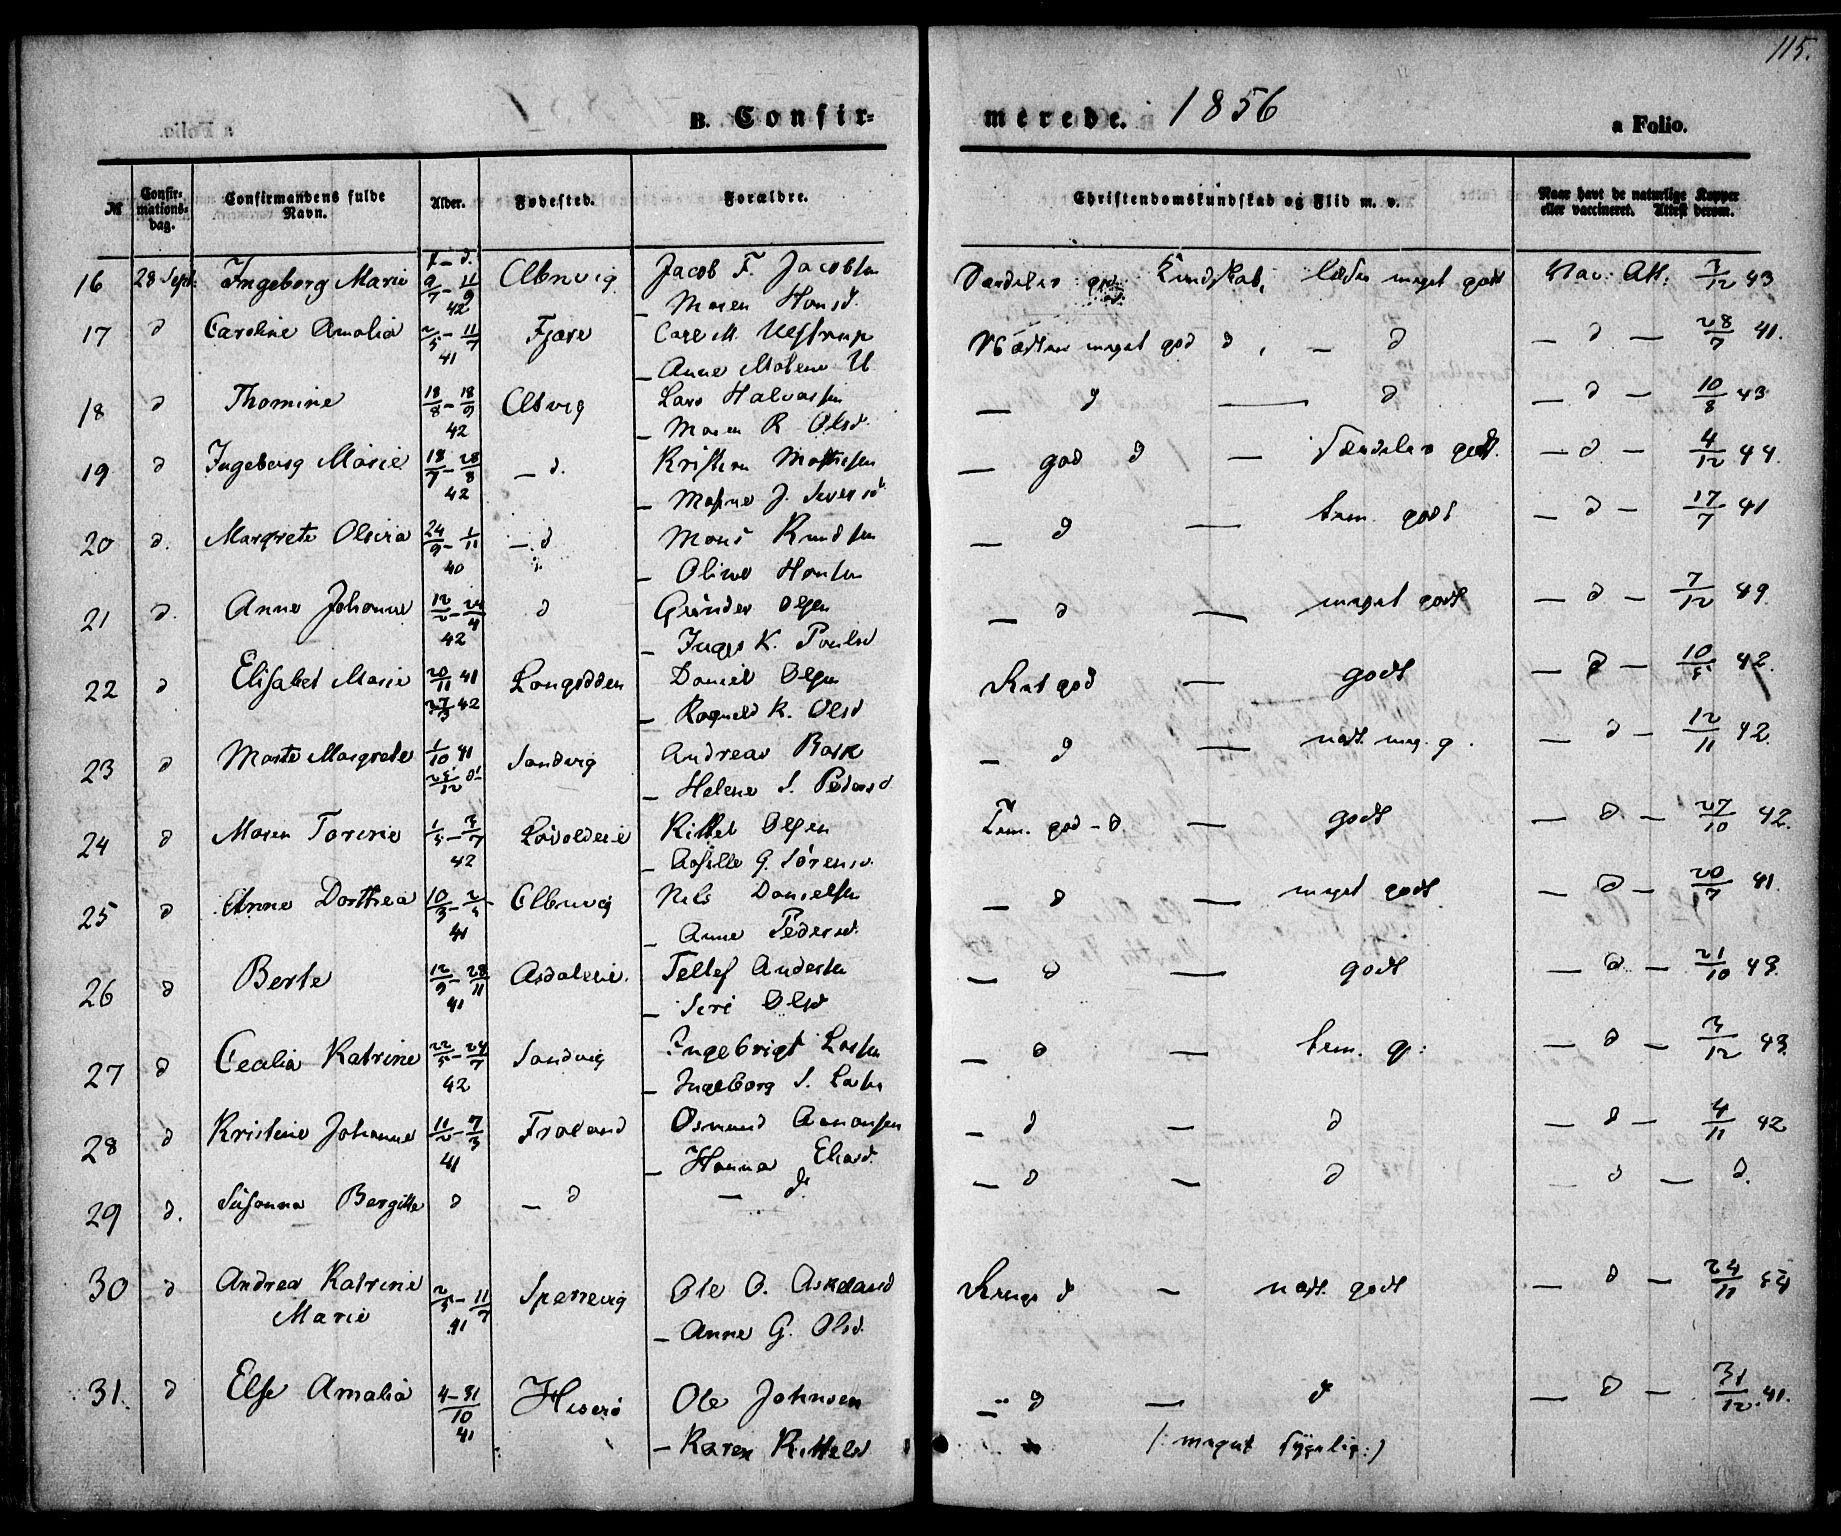 115.
B. Confir-
merede. 1856
a Folio.
№
Confir-
mations-
dag.
Confirmandens fulde
Navn.
Alder.
Fødested.
Forældre.
Christendomskundskab og Flid m. v.
Naar havt de naturlige Kopper
eller vaccineret. Attest derom.
f. - d.
16 28 Sept: Ingeborg Marie 9/7 - 11/9 42 Jacob F. Jacobsen
- Maren Hansd.
Særdeles god Kundskab, læser meget godt Vac: Att: 7/12 43
17 d Caroline Amalia 2/5 - 11/7 41 Fjære Carl M. Ugstrup
- Anne Malene U
meget god d, - d - d - 28/7 41.
18 d Thomine 18/8 - 18/9 42 Lars Halvorsen
- Maren R Olsd.
- d - d - d - 10/8 43
19 d Ingeborg Marie 18/7 - 28/8 42 - d. Kristen Mathisen
- J. Siversd
- god d - Særdeles godt. - d - 4/12 44.
20 d. Margrete Olivia 24/9 - 1/11 40 - d Mons Knudsen
- Oline Hansen
- d - tem. godt - d - 17/7 41
21 d. Anne Johanne 12/2 - 24/4 42 d Gunder Olsen
- Inger K. Poulsd
- d - meget godt - d - 7/12 49.
22 d Elisabet Marie 20/11 41 27/3 42 Longødden Daniel Olsen
- Ragnild K. Olsd
god - godt - d - 10/5 42.
23 d Marte Margrete 1/10 41 Sandvig Andreas Bask
- Helene S. Pedersd
- d - nogl. meg. g. - d - 12/11 42.
24 d Maren Torine 1/5 - 3/7 42 Løvoldeie Kittel Olsen
- Aasille G. Sørensd.
Tem. god - d. - godt - d - 27/10 42.
25 d Anne Dorthea 10/3 - 2/5 41 Nils Danielsen
- Anne Pedersd.
- d - meget godt - d - 20/7 41.
26 d Berte 12/9 - 28/11 41 Asdaleie. Tellef Andersen
- Siri Olsd
- d - godt - d. - 21/10 43.
27 d Cecalia Katrine 22/5 - 24/7 42 Sandvig Ingebrigt Larsen
- Ingeborg S. Larsen
- d - tem. g: - d - 3/12 43.
28 d Kristine Johanne 11/2 - 7/3 41 Froland Osmund Aanonsen
- Hanna Eliasd.
- d - d - d - 4/11 42
29 d. Susanna Bergitte d - d - d.
- d - d - d - d.
30 d Andrea Katrine
Marie 2/5 - 11/7 41 Spærrevig Ole O. Askeland
- Anne G. Olsd.
d - nogl. godt - d - 24/11 54
31. d Else Amalia 4 - 31/10 41 Hiserø Ole Johnsen
- Karen Kittelsd
- d - d - d - 31/12. 41.
(: meget sygelig :)